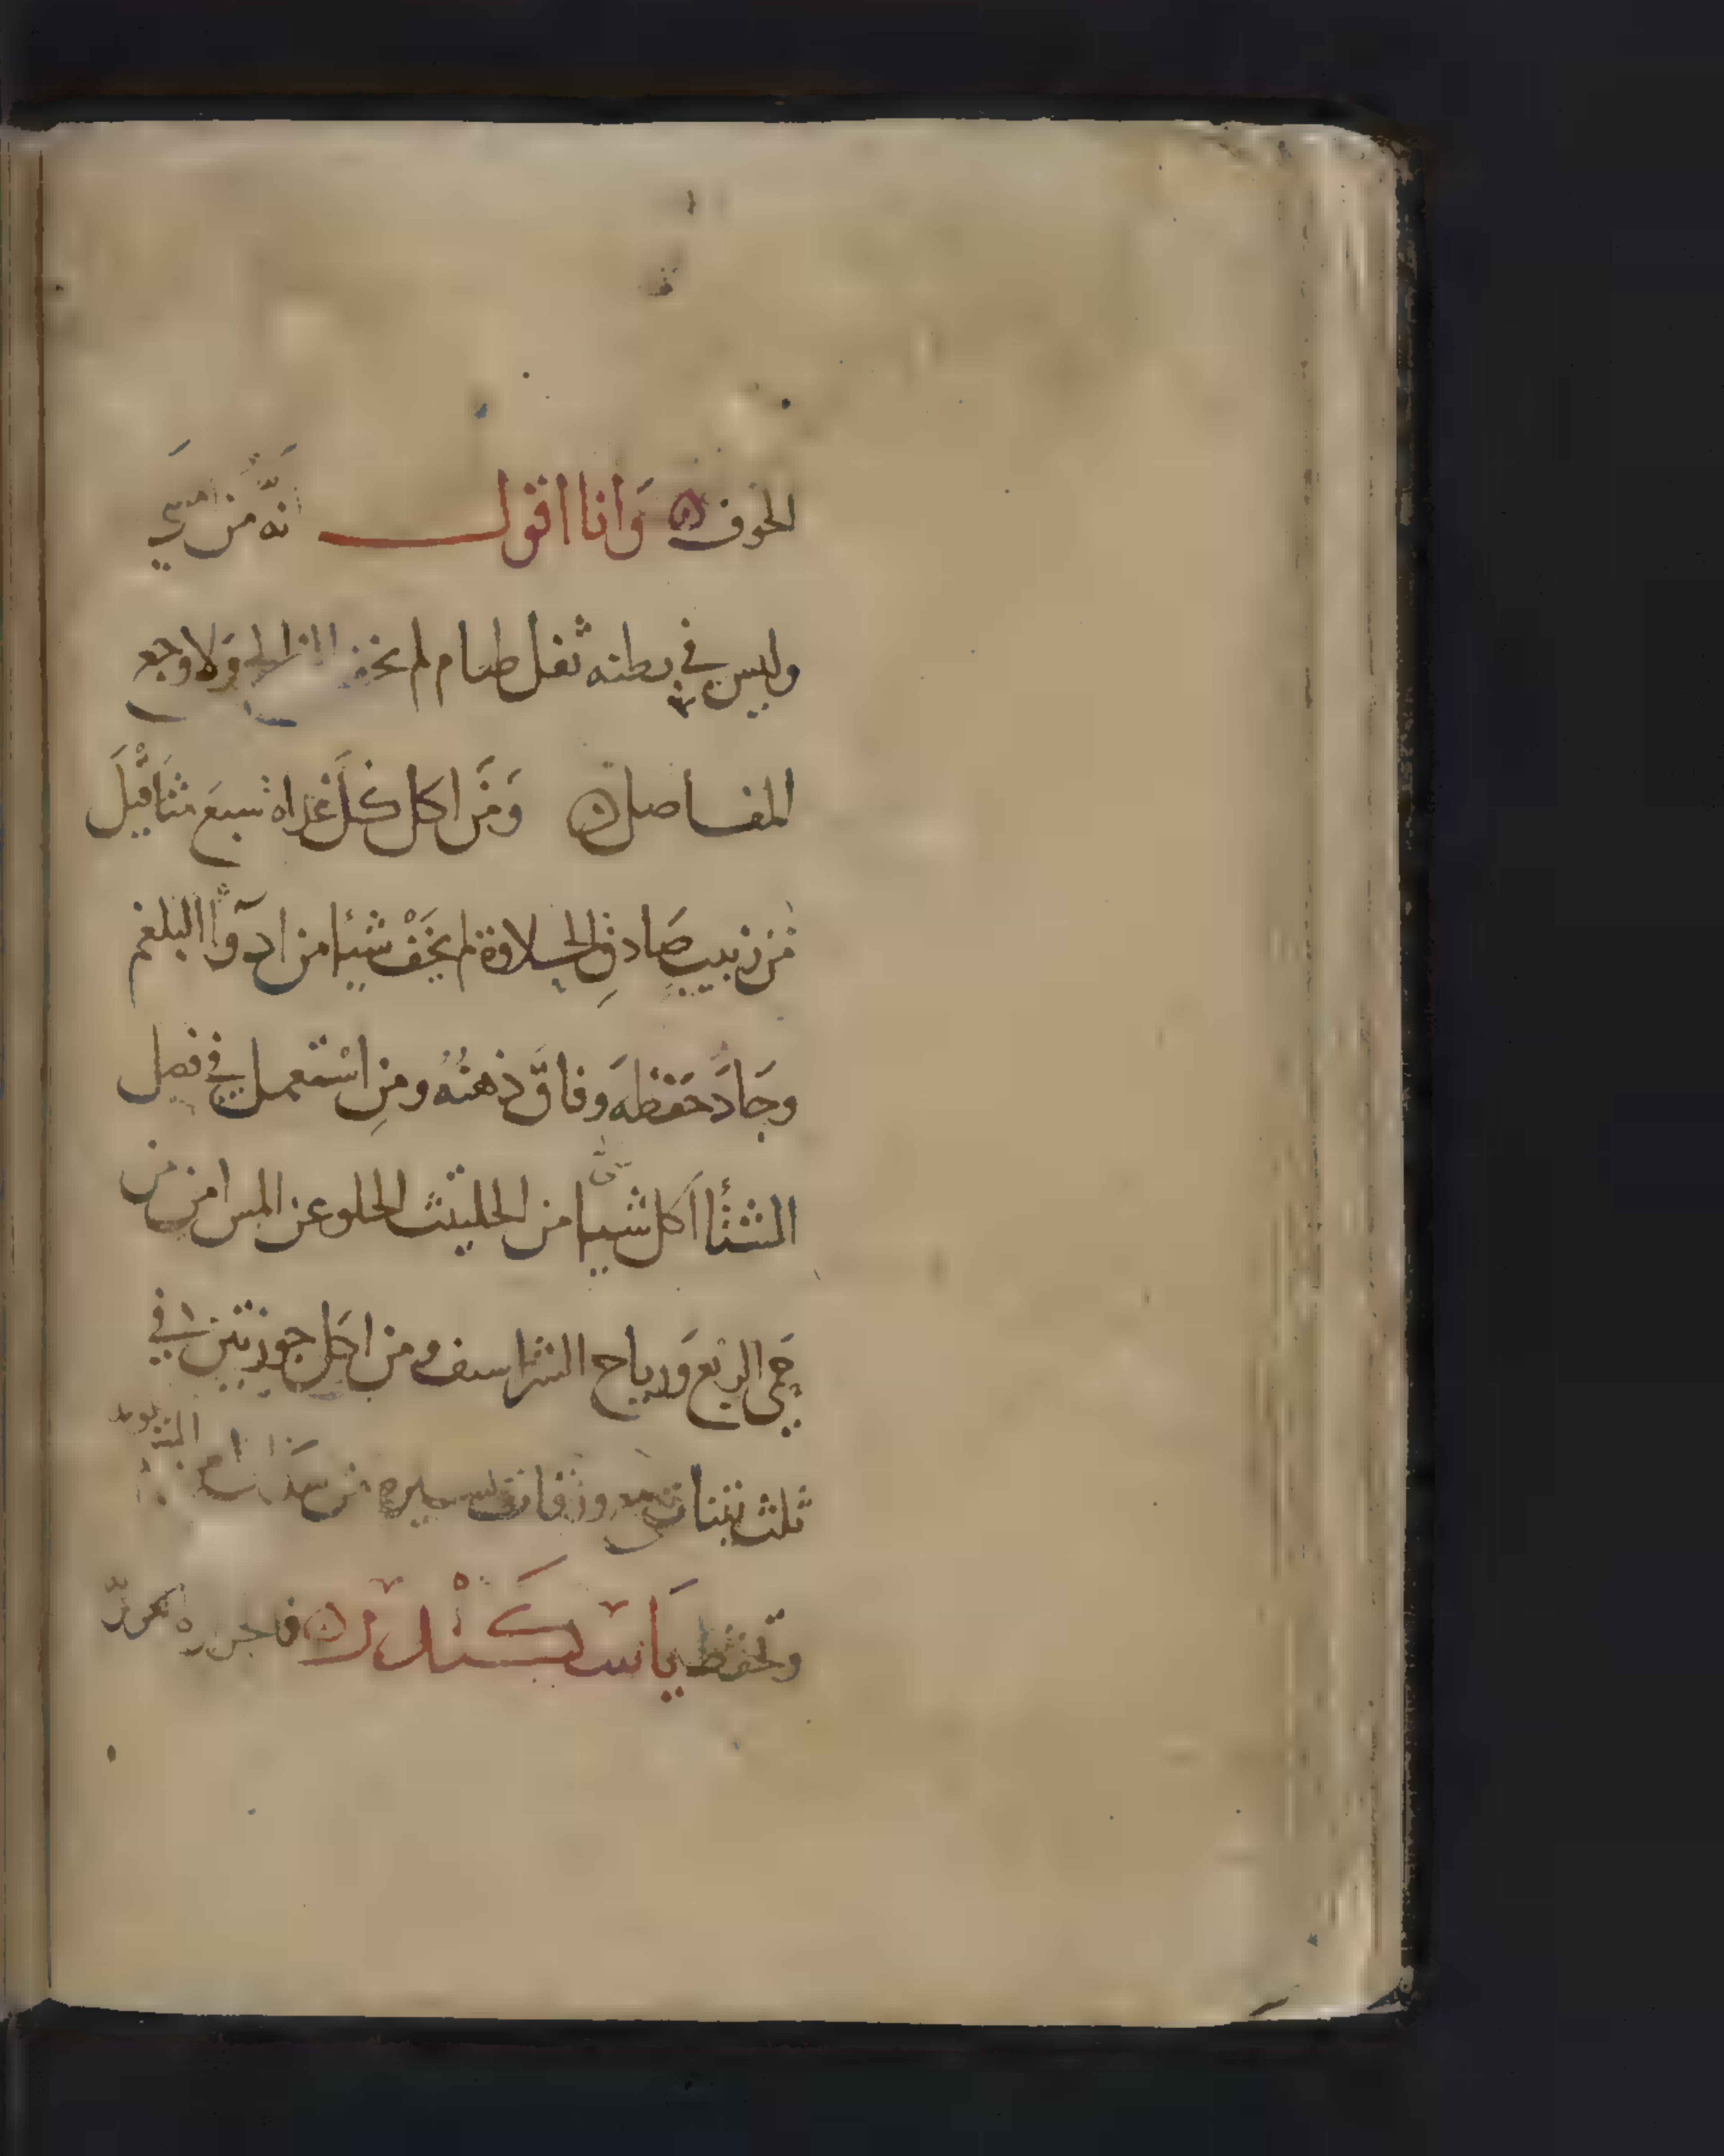 الخوف وانا اقول انه من امسي
وليس في بطنه ثفل طعام لم يخف الفالج ولا وجع
المفاصل ومن اكل كل غداه سبع مثاقيل
من زبيب صادق الحلاوة لم يخف شيئا من ادوا البلغم
وجاد حفظه وفاق ذهنه ومن استعمل في فصل
الشتا اكل شيا من الحلتيت الحلو عن المس امن من
حمى الربع ورياح الشراسف ومن اكل جوزتين في
ثلث تينات مع ورقات يسيره من سذاب امن
وتحفظ يا سكندر